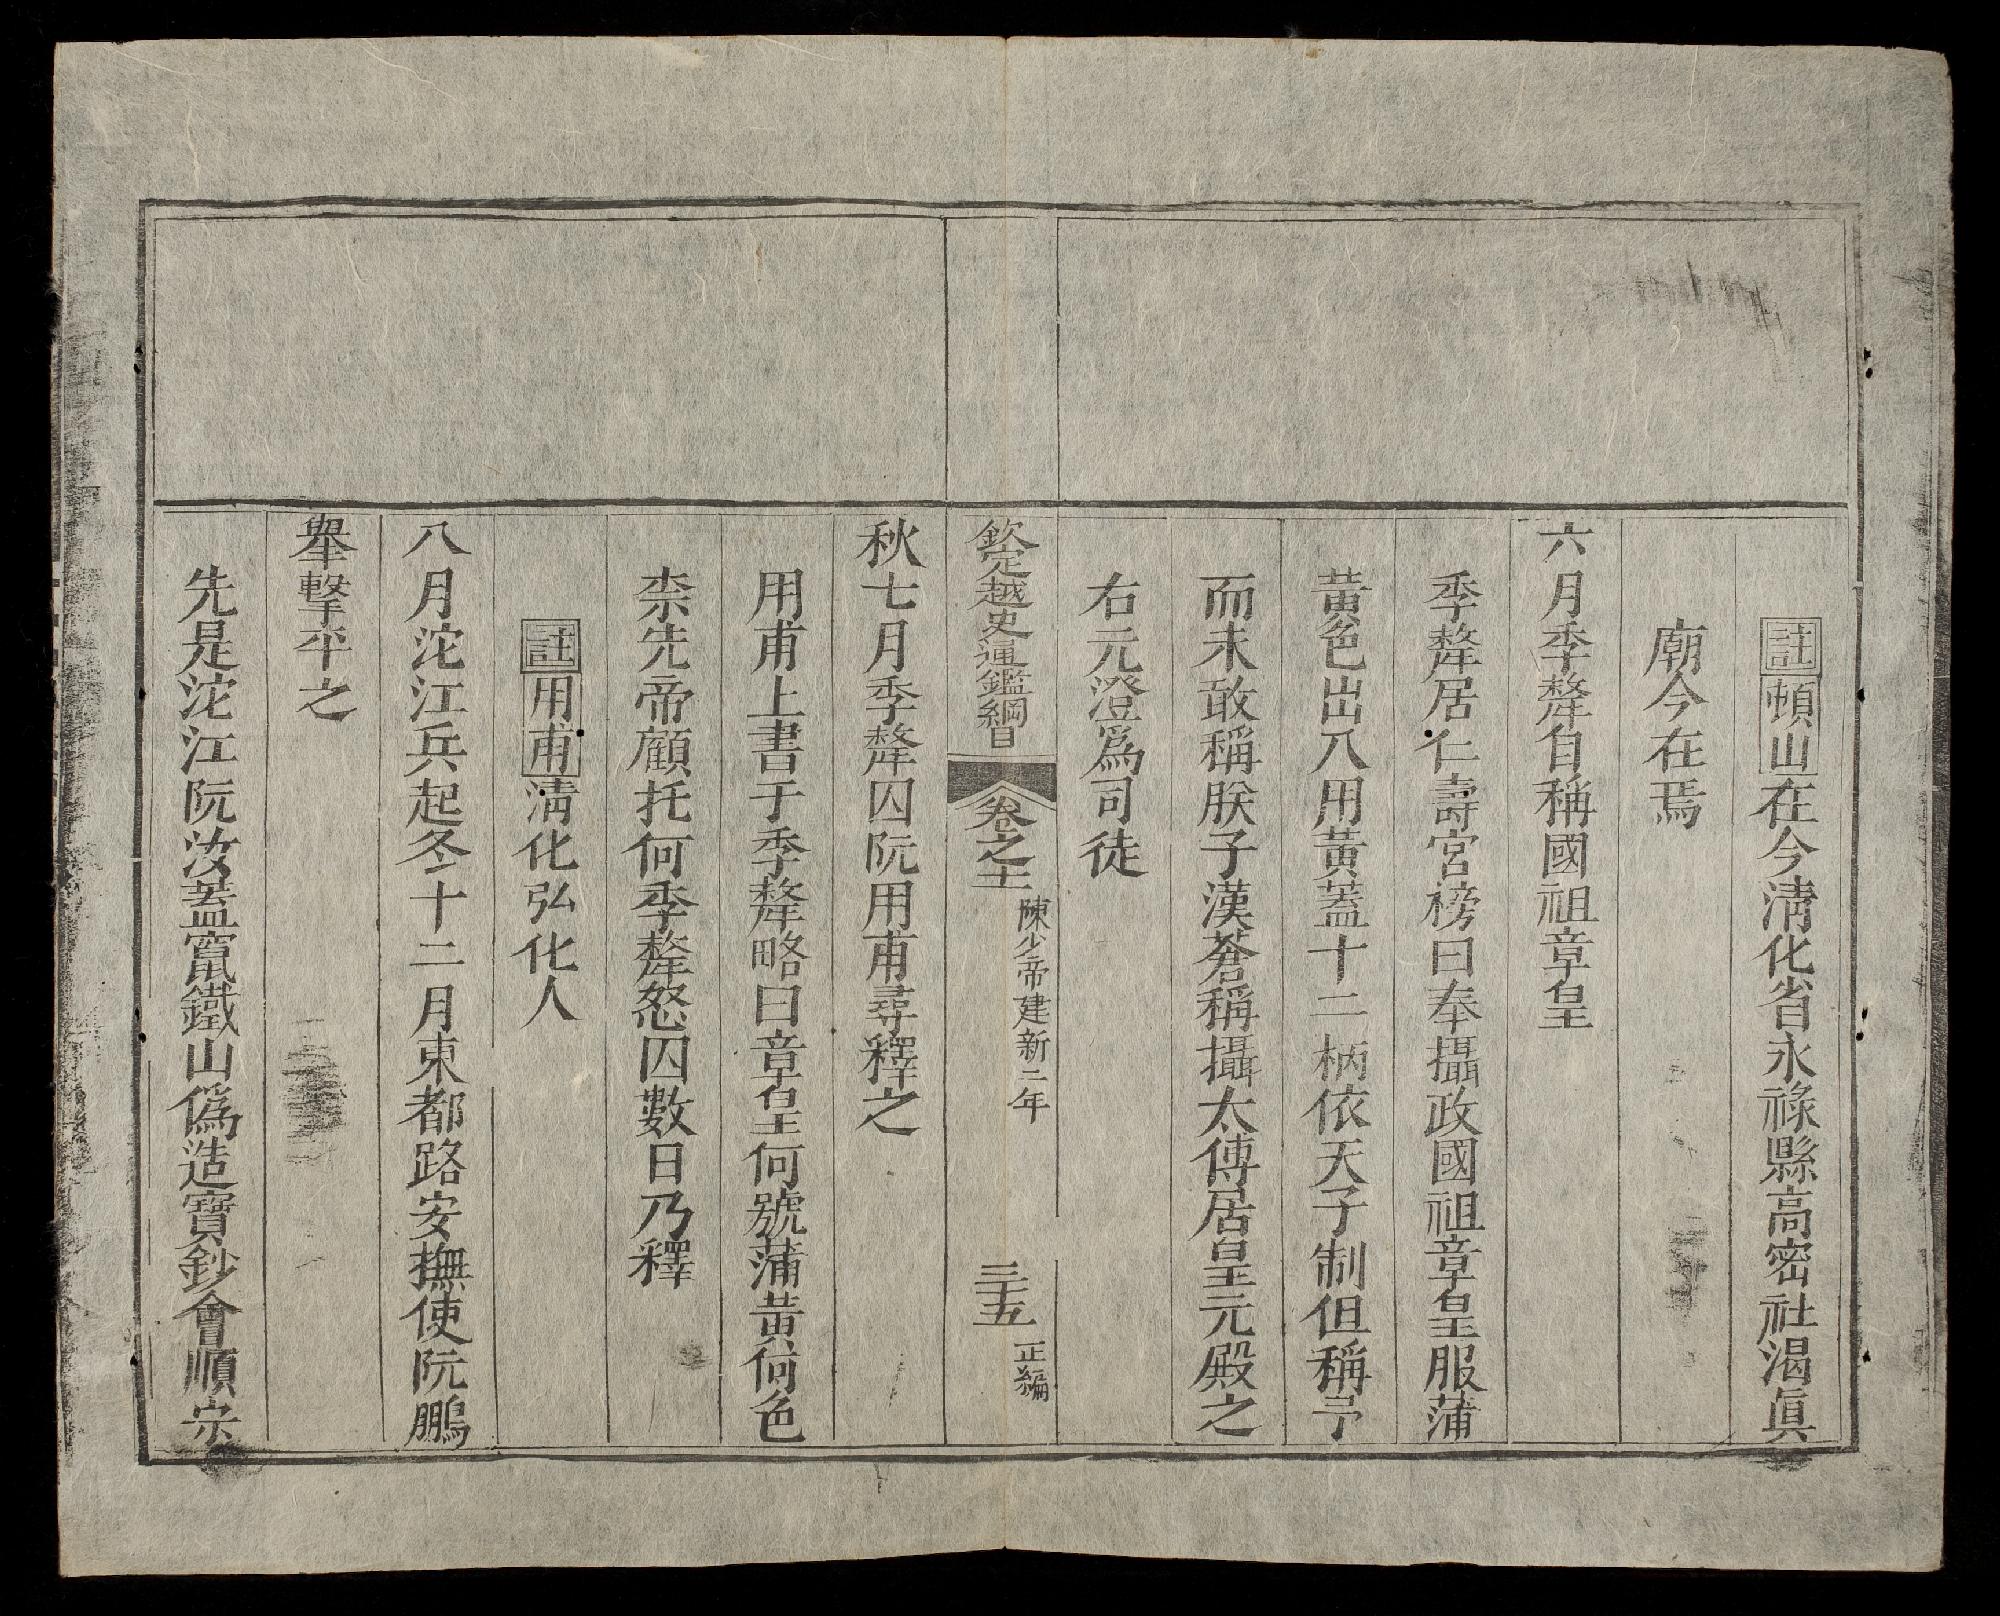 註頓山在今淸化省永祿縣高密社渴眞
廟今在焉
六月季犛自稱國祖章皇
季犛居仁壽宮榜曰奉攝政國祖章皇服蒲
黃色出入用黃蓋十二柄依天子制但稱予
而未敢稱朕子漢蒼稱攝太傅居皇元殿之
右元澄爲司徒
欽定越史通鑑綱目
卷之十一
陳少帝建新二年
三十五
正編
秋七月季犛囚阮用甫尋釋之
用甫上書于季犛略曰章皇何號蒲黃何色
柰先帝顧托何季犛怒囚數日乃釋
註用甫淸化弘化人
八月沱江兵起冬十二月東都路安撫使阮鵬
舉擊平之
先是沱江阮汝蓋竄鐵山僞造寶鈔會順宗